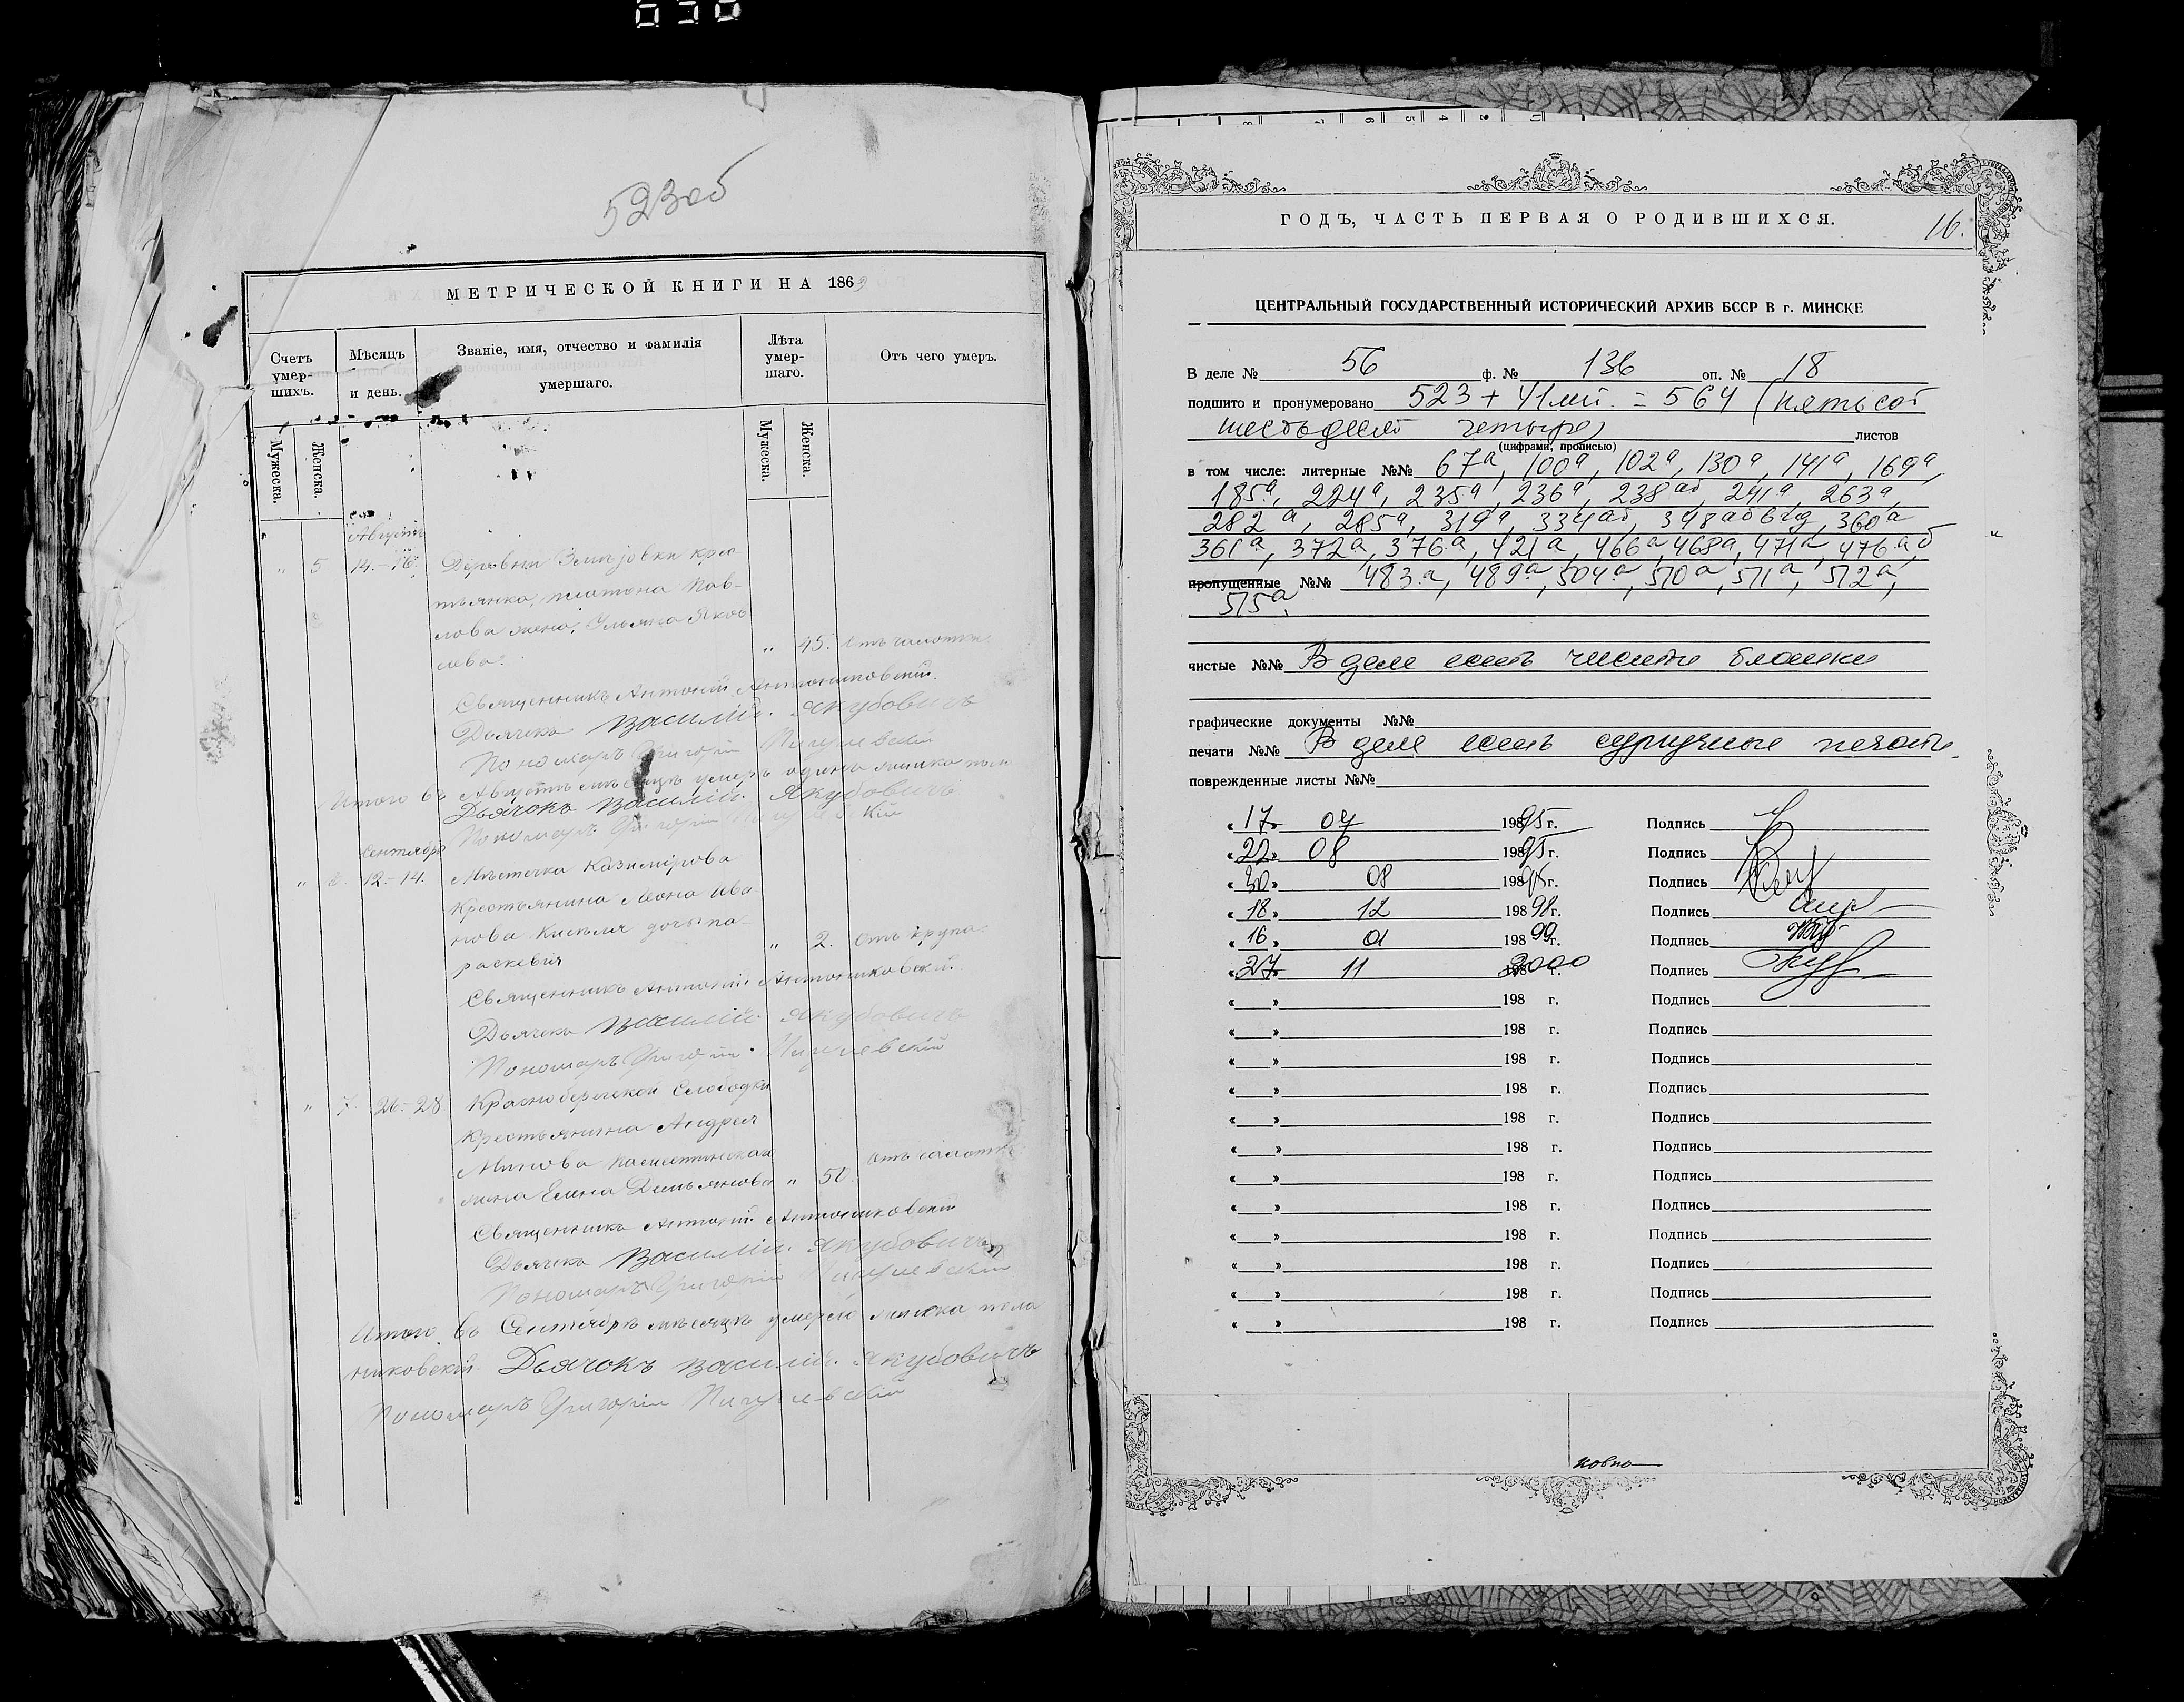 523об
МЕТРИЧЕСКОЙ КНИГИ НА 186
Счетъ умер-шихъ.
Мѣсяцъ и день.
Званіе, имя, отчество и фамилія умершаго.
Лѣта умер-шаго.
Отъ чего умеръ.
Мужеска.
Женска.
Мужеска.
Женска.
Августъ
" 5 14.-16. Деревни крес-
тьянка, Пав-
лова жена, Яков
лева. " 45.
Священникъ Антоній Антониковскій.
Дьячекъ Василій Якубовичъ
Пономарь Григорій
Итого въ Августѣ мѣсяцѣ умеръ одинъ
Дьячокъ Василій Якубовичъ
Пономарь Григорій
Сентября
" 12.-14. Мѣстечка Казимірова
Крестьянина Ива-
нова дочь Па-
раскевія " 2. Отъ крупа.
Священникъ Антоній Антониковскій.
Дьячекъ Василій Якубовичъ
Пономарь Григорій
" 7. 26.-28. Красноберегской Слободки
Крестьянина Андрея
Минова
жена Елена Демьянова " 50.
Священникъ Антоній Антониковскій
Дьячекъ Василій Якубовичъ
Пономарь Григорій
Итого въ Сентябрѣ мѣсяцѣ умерло женска пола
никовскій Дьячокъ Василій Якубовичъ
Пономарь Григорій
ГОДЪ, ЧАСТЬ ПЕРВАЯ О РОДИВШИХСЯ.
16.
ЦЕНТРАЛЬНЫЙ ГОСУДАРСТВЕННЫЙ ИСТОРИЧЕСКИЙ АРХИВ БССР В г. МИНСКЕ
В деле № 56 ф. № 136 оп. № 18
подшито и пронумеровано 523 + 41лит. = 564 (пятьсот
шестьдесят четыре) листов
(цифрами, прописью)
в том числе: литерные №№ 67а, 100а, 102а, 130а, 141а, 169а,
185а, 224а, 235а, 236а, 238аб, 241а, 263а,
282а, 285а, 319а, 334аб, 348абвгд, 360а
361а, 372а, 376а, 421а, 466а, 468а, 471а, 476а,б
пропущенные №№ 483а, 489а, 504а, 510а, 511а, 512а,
515а
чистые №№ В деле есть чистые бланки
графические документы №№
печати №№ В деле есть сургучные печати.
поврежденные листы №№
«17» 07 19895г. Подпись
«22» 08 19895г. Подпись
«30» 08 19895г. Подпись
«18» 12 19898г. Подпись
«16» 01 19899г. Подпись
«27» 11 2000 198 г. Подпись
« » 198 г. Подпись
« » 198 г. Подпись
« » 198 г. Подпись
« » 198 г. Подпись
« » 198 г. Подпись
« » 198 г. Подпись
« » 198 г. Подпись
« » 198 г. Подпись
« » 198 г. Подпись
« » 198 г. Подпись
« » 198 г. Подпись
« » 198 г. Подпись